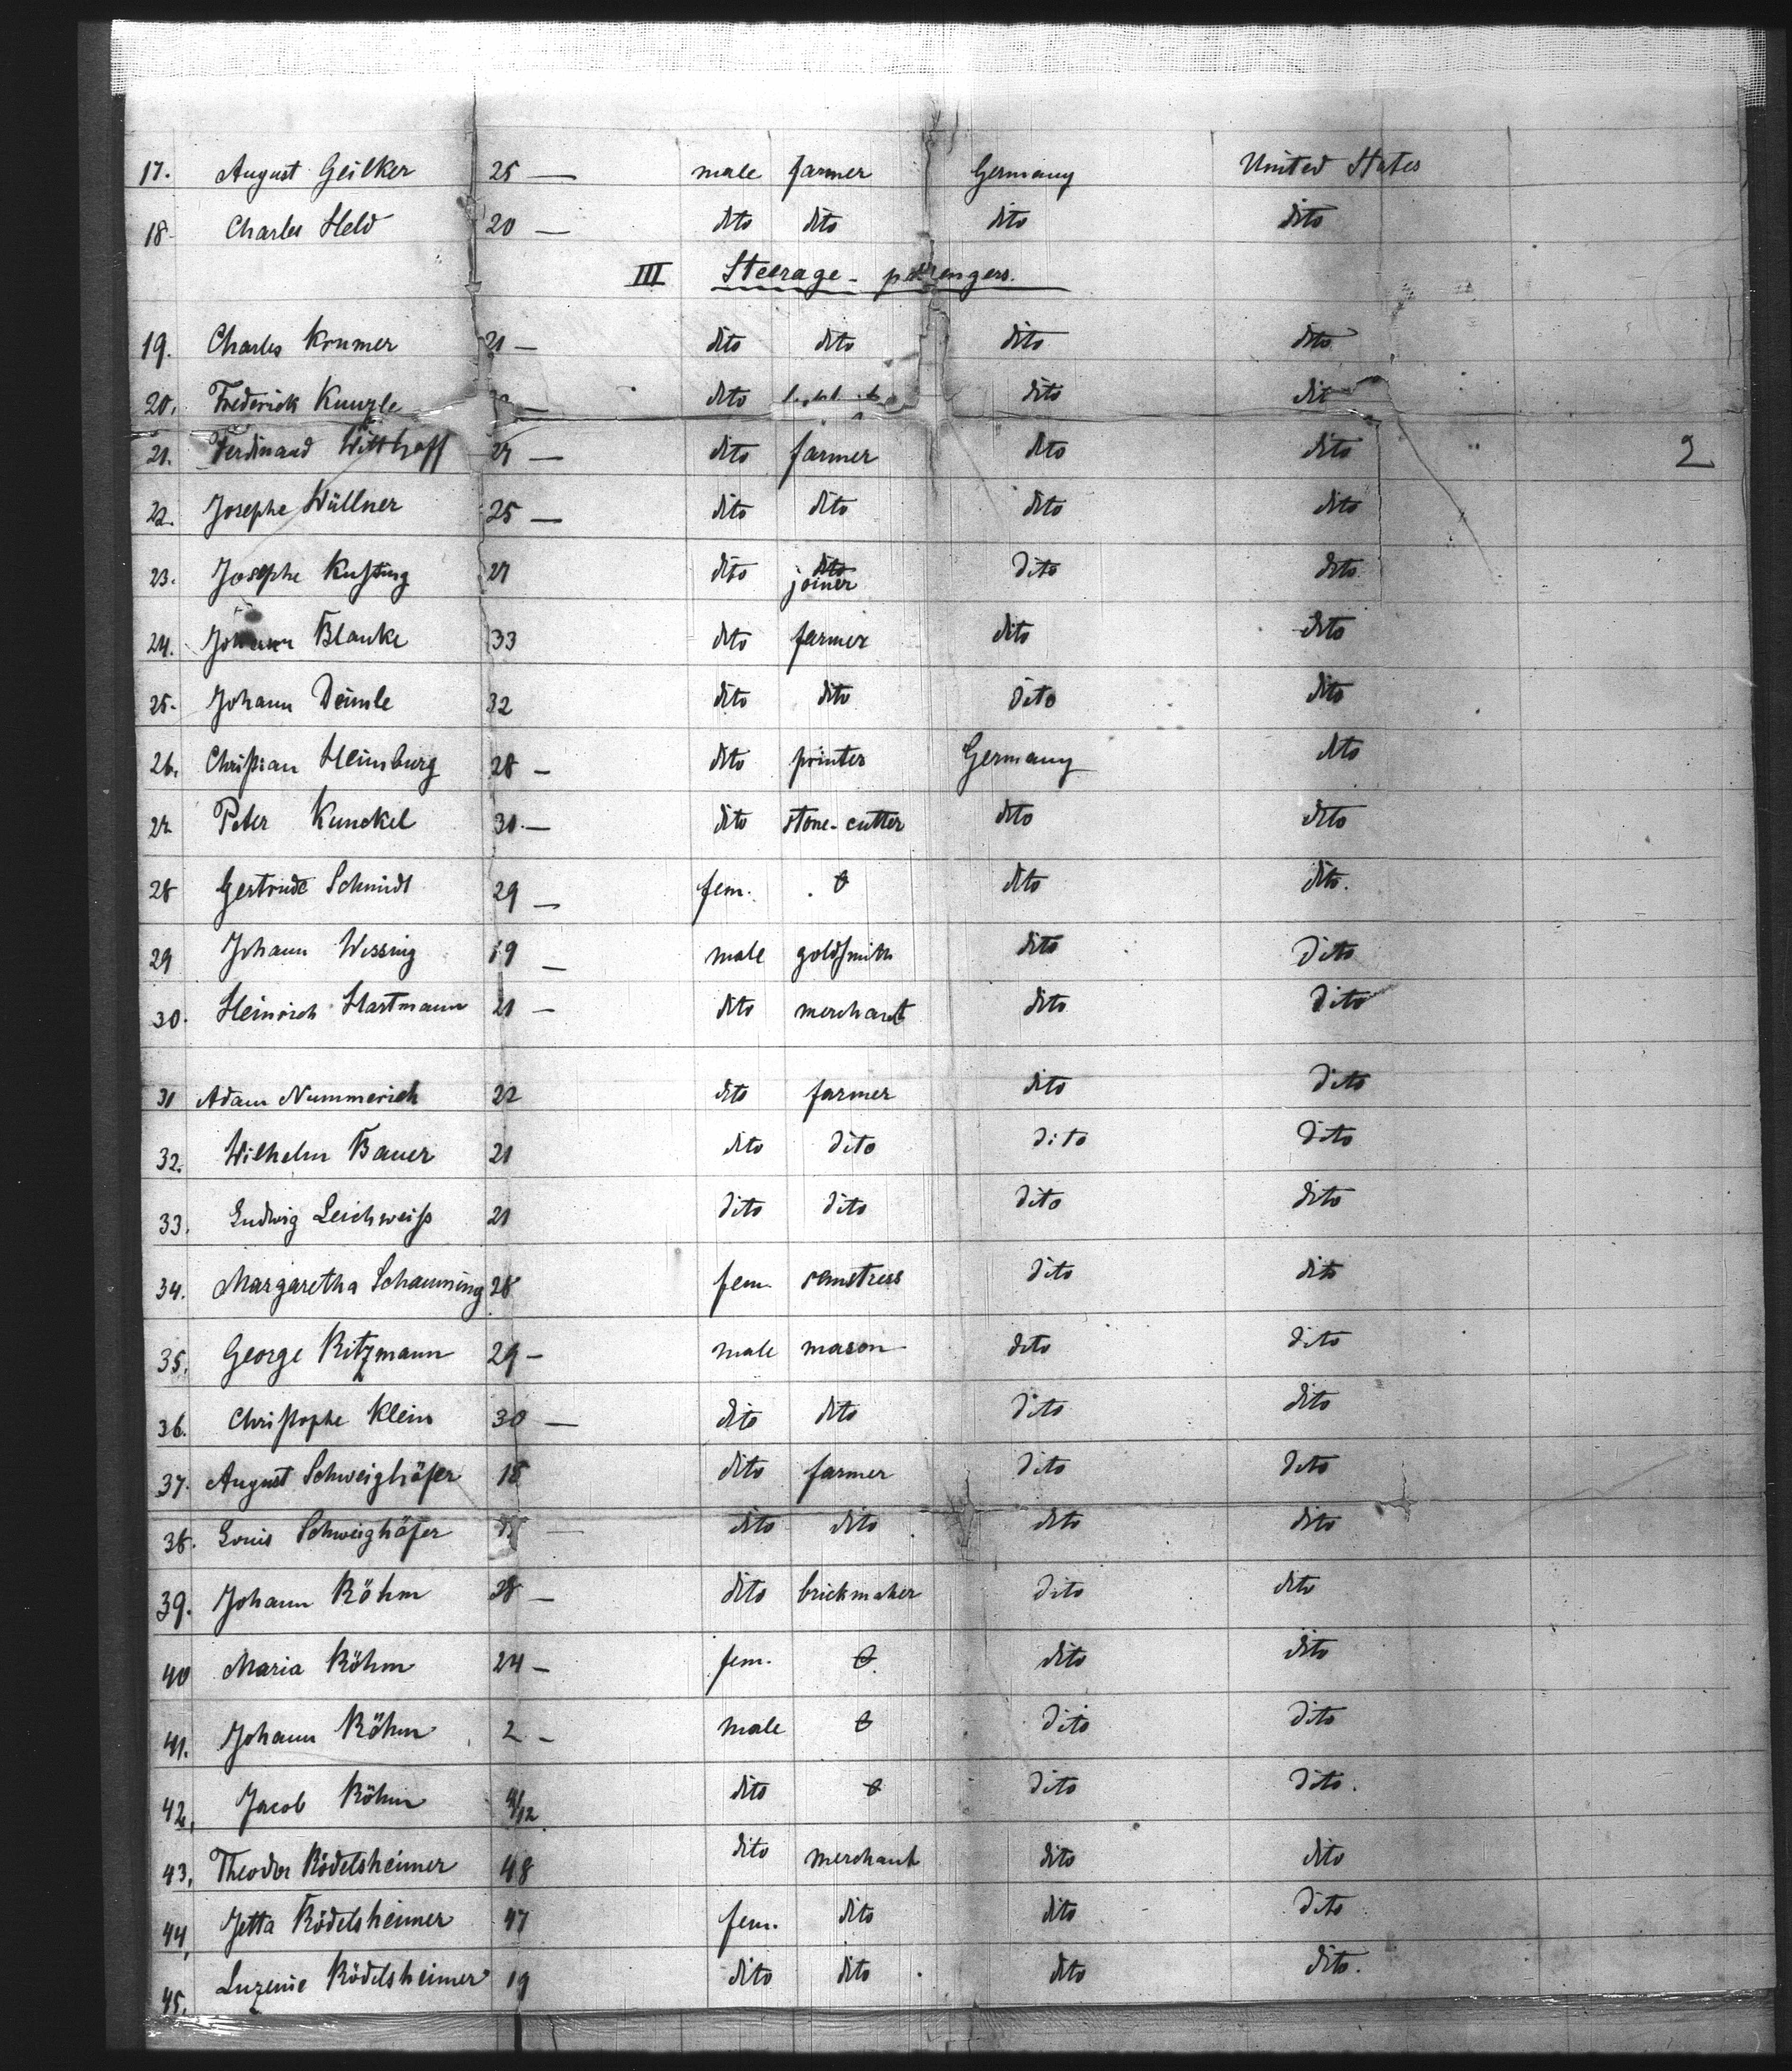 17. August Geilker 25 — male farmer Germany United States
18 Charles Held 20 — dito dito dito dito
III Steerage - passengers.
19. Charles Krumer 21 — dito dito dito dito
20. Frederick Kunzle — dito dito dit
21. Ferdinand Witthoff 27 — dito farmer dito dito
2
22. Josephe Wüllner 25 — dito dito dito dito
23. Josephe 27 dito dito joiner dito dito
24. Johann Blanke 33 dito farmer dito dito
25. Johann Deimle 32 dito dito dito dito
26. Christian Heimburg 28 — dito printer Germany dito
27 Peter Kunckel 30. — dito stone-cutter dito dito
28 Gertrude Schmidt 29 — fem. dito dito.
29 Johann Wessing 19 — male goldsmith dito dito
30. Heinrich Hartmann 21 — dito merchant dito dito
31 Adam Nummerich 22 dito farmer dito dito
32. Wilhelm Bauer 21 dito dito dito dito
33. Ludwig Leichweiss 21 dito dito dito dito
34. Margaretha Schauning 28 fem. semstress dito dito
35. George Ritzmann 29 — male mason dito dito
36. Christophe Klein 30 — dito dito dito dito
37. August Schweighöfer 18 dito farmer dito dito
38. Louis Schweighöfer — dito dito dito dito
39. Johann Röhm 28 — dito brickmaker dito dito
40 Maria Röhm 24 — fem. dito dito
41. Johann Röhm 2 — male dito dito
42. Jacob Röhm /12 dito dito dito.
43. Theodor Rödelsheimer 48 dito merchant dito dito
44, Jetta Rödelsheimer 47 fem. dito dito dito
45. Luzenie Rödelsheimer 19 dito dito dito dito.